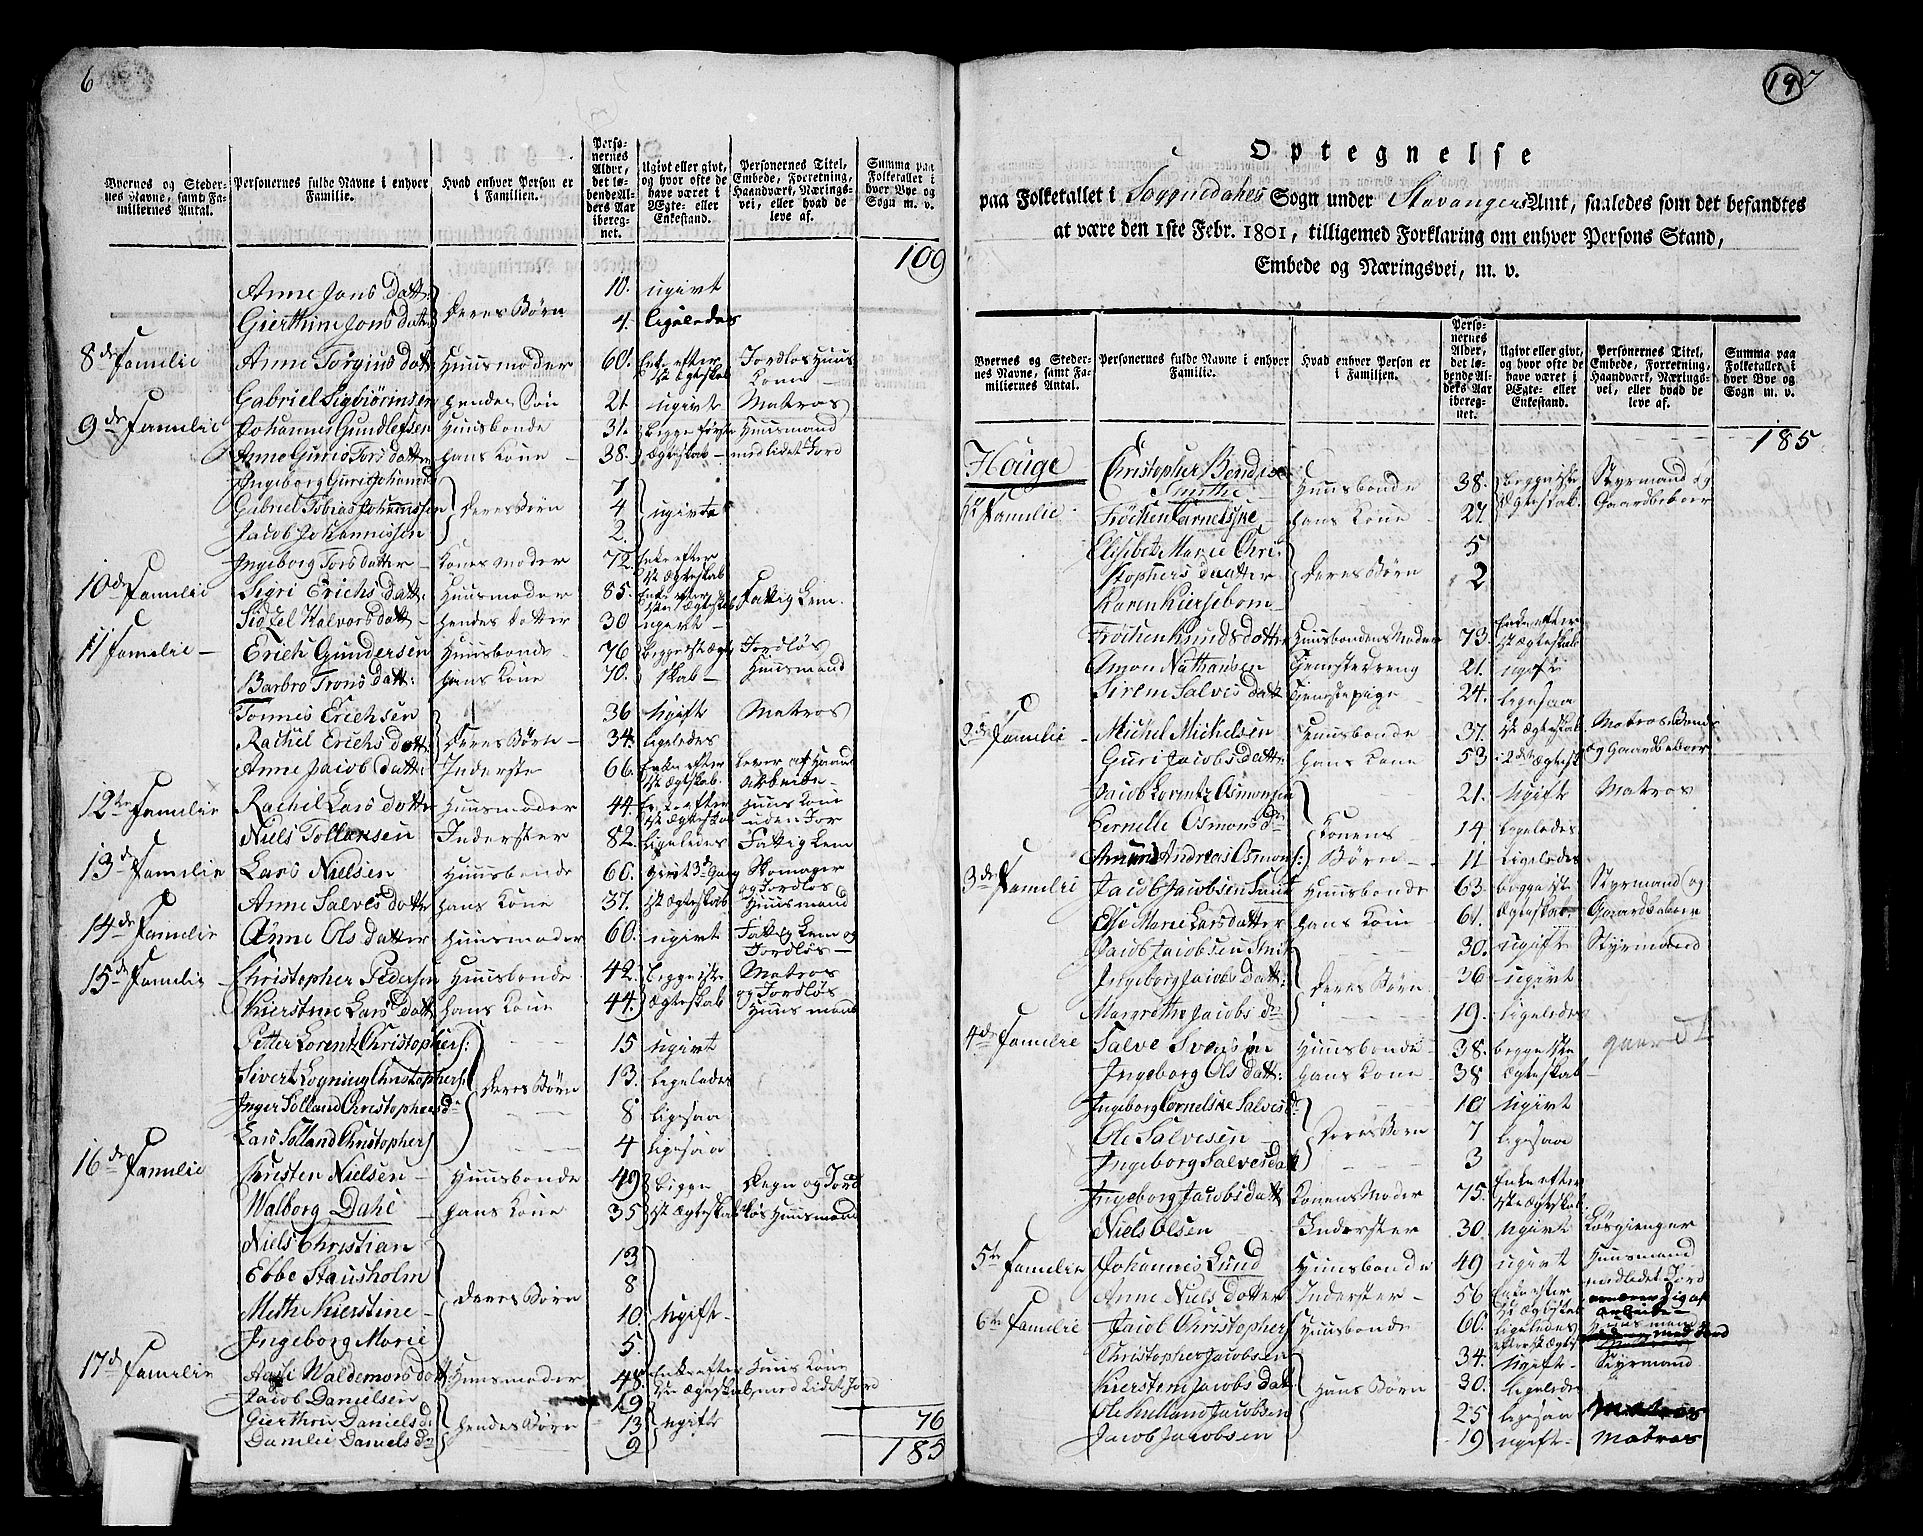 6
Byernes og Steder-
nes Navne, samt Fa-
miliernes Antal.
Personernes fulde Navne i enhver
Familie.
Hvad enhver Person er
i Familien.
Perso-
nernes
Alder,
det lø-
bende Al-
ders Aar
ibereg-
net.
Ugivt eller givt,
og hvor ofte de
have været i
Ægte- eller
Enkestand.
Personernes Titel,
Embede, Forretning,
Haandværk, Nærings-
vei, eller hvad de
leve af.
Summa paa
Folketallet i
hver Bye og
Sogn m. v.
109
Anne Jons Datt: Deres Børn 10. ugivt
Gierthrine Jons datt: 4. ligeledes
8de Familie Anne Torgius datt Huusmoder 60. Enke efter 1st Ægteskab Jordløs Huus Kone
Gabriel Sigbiørnsen hendes Søn 21. ugivt Matros
9de Familie Johannes Gundlefsen Huusbonde 31. begge første Huusmand
Anne Gurie Tors datter hans Kone 38. Ægteskab med lidet Jord
Ingeborg Guri Johannes 7
Gabriel Tobias Johannissen Deres Børn 4 ugivte
Jacob Johannissen 2.
Ingeborg Tors datter Konens Moder 72. Enke efter 1st Ægteskab
10de Familie Sigri Erichs datt: Huusmoder 85. Enke efter 1ste Ægteskab Fattig Lem
Sidzel Halvors datt hendes datter 30 ugivt
11 Familie Erich Gundersen Huusbonde 76 begge 1st Ægte Jordløs
Barbro Trons datt: hans Kone 70. skab Huusmand
Tonnes Erichsen 36 Ugift Matros
Rachel Erichs datt: Deres Børn 34. ligeledes
Anne Jacob datt: Inderste 66. Enke efter 1st Ægteskab lever af Haand Arbeide
12te Familie Rachel Lars datter Huusmoder 44. Enke efter 1st Ægteskab Huus Kone uden Jor
Niels Tollaksen Inderster 82. ligeledes Fattig Lem
13de Familie Lars Nielsen Huusbonde 66. givt 3de Gang Skomager
Anne Salves datter hans Kone 37. 1st Ægteskab og Jordløs Huusmand
14de Familie Anne Ols datter Huusmoder 60. ugivt Fattig Lem og Jordløs
15de Familie Christopher Pedersen Huusbonde 42. begge 1ste Matros
Kierstine Lars datt hans Kone 44. Ægteskab og Jordløs Huus mand
Petter Lorentz Christophers: 15 ugivt
Sivert Logning Christophers: Deres Børn 13. ligeledes
Inger Solland Christophers dr 8 ligesaa
Lars Solland Christophers 4 ligesaa
16de Familie Christen Nielsen Huusbonde 49 begge Degn og Jord
Walborg Dahl hans Kone 35 1st Ægteskab løs Huusmand
Niels Christian 13
Ebbe Stausholm 8
Methe Kierstine Deres Børn 10. Ugift
Ingeborg Marie 5.
17de Familie Waldemors datt Huusmoder 48. Enke efter Huus Kone
1ste Ægteskab med Lidet Jord
Jacob Danielsen 19
Gierthru Daniels d: hendes Børn 13 ugift
Daniels dr 9
76
185
19 7
Optegnelse
paa Folketallet i Soggnedahls Sogn under Stavangers Amt, saaledes som det befandtes
at være den 1ste Febr. 1801, tilligemed Forklaring om enhver Persons Stand,
Embede og Næringsvei, m. v.
Byernes og Steder-
nes Navne, samt Fa-
miliernes Antal.
Personernes fulde Navne i enhver
Familie.
Hvad enhver Person er
i Familien.
Perso-
nernes
Alder,
det lø-
bende Al-
ders Aar
ibereg-
net.
Ugivt eller givt,
og hvor ofte de
have været i
Ægte- eller
Enkestand.
Personernes Titel,
Embede, Forretning,
Haandværk, Nærings-
vei, eller hvad de
leve af.
Summa paa
Folketallet i
hver Bye og
Sogn m. v.
185
Houge Christopher Smithe Huusbonde 38. begge 1ste Styrmand og
1st Familie Trøicken hans Kone 27. Ægteskab Gaardbeboer
Elisebet Marie Chri- 5
stophers daatter Deres Børn 2
Karen Kiersebom
Trøicken Knuds datter Huusbondens Moder 73. Enke efter 1st Ægteskab
Amon Nathansen Tjenstedreng 21. ugift
Sirene Salves datt Tjenstepige 24. ligesaa
2de Familie Michel Michelsen Huusbonde 37. 1st Ægteskab Matros
Guri Jacobs datt: hans Kone 53. 2de Ægtesk og Gaardbeboer
Jacob Lorentz Osmonsen 21. Ugift Matros
Pernelle Osmons dr Konens 14. ligeledes
Amund Andreas Osmons: Børn 11 ligeledes
3de Familie Jacob Jacobsen Smit Huusbonde 63. begge 1ste Styrmand og
Else Marie Lars datter hans Kone 61. Ægteskab Gaardbeboer
Jacob Jacobsen Smit 30. ugift Styrmand
Ingeborg Jacobs datt: Deres Børn 36 ugivt
Margrethe Jacobs dr 19. ligeledes
4de Familie Salve Svensen Huusbonde 38. begge 1ste gaard
Ingeborg Ols datt: hans Kone 38 Ægteskab
Ingeborg Cornelske Salves dr 10 Ugivt
Ole Salvesen Deres Børn 7 ligesaa
Ingeborg Salves datt 3
Ingeborg Jacobs datt Konens Moder 75. Enke efter 1ste Ægteskab
Niels Olsen Inderster 30. Ugivt Løsgienger
5te Familie Johannes Lund Huusbonde 49 ugivt Huusmand med lidet Jord
Anne Niels datter Inderster 56 Enke efter 1st Ægteskab
6te Familie Jacob Christophers Huusbonde 60. ligeledes Huusmand
Christopher Jacobsen 34. Ugift Styrmand
Kiersten Jacobs datt hans Børn 30. ligeledes
Ole Jacobsen 25 ligesaa
Jacob Jacobsen 19 ugift Matros